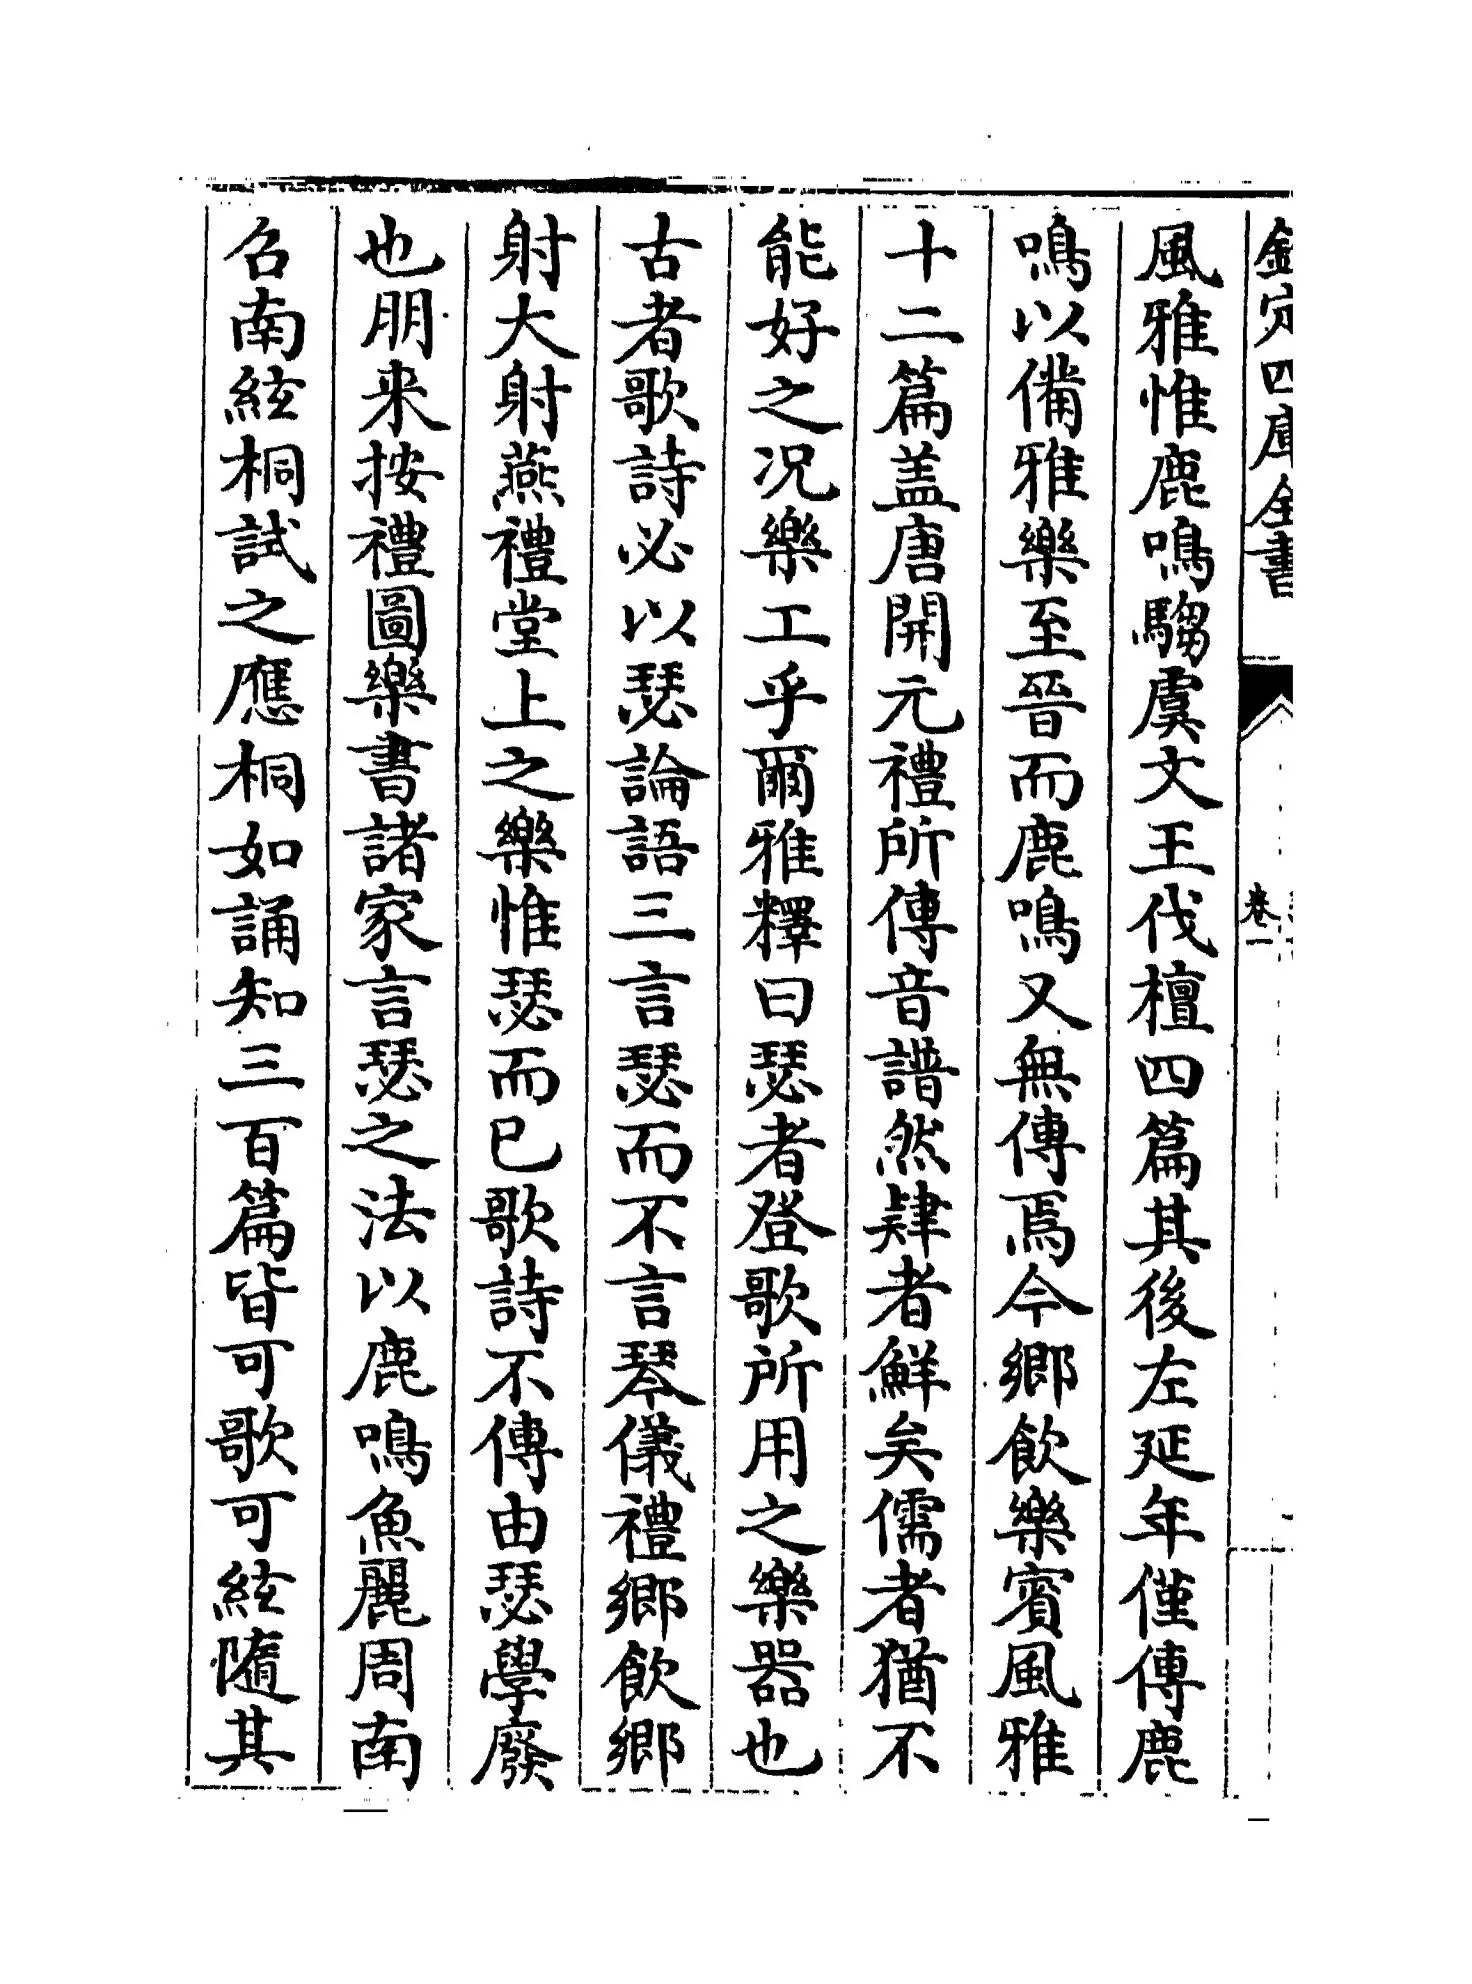 欽定四庫全書
卷一
風雅惟鹿鳴騶虞文王伐檀四篇其後左延年僅傳鹿
鳴以備雅樂至晉而鹿鳴又無傳焉今鄉飲樂賓風雅
十二篇盖唐開元禮所傳音譜然肄者鮮矣儒者猶不
能好之况樂工乎爾雅釋曰瑟者登歌所用之樂器也
古者歌詩必以瑟論語三言瑟而不言琴儀禮鄉飲鄉
射大射燕禮堂上之樂惟瑟而已歌詩不傳由瑟學廢
也朋来按禮圖樂書諸家言瑟之法以鹿鳴魚麗周南
召南絃桐試之應桐如誦知三百篇皆可歌可絃隨其